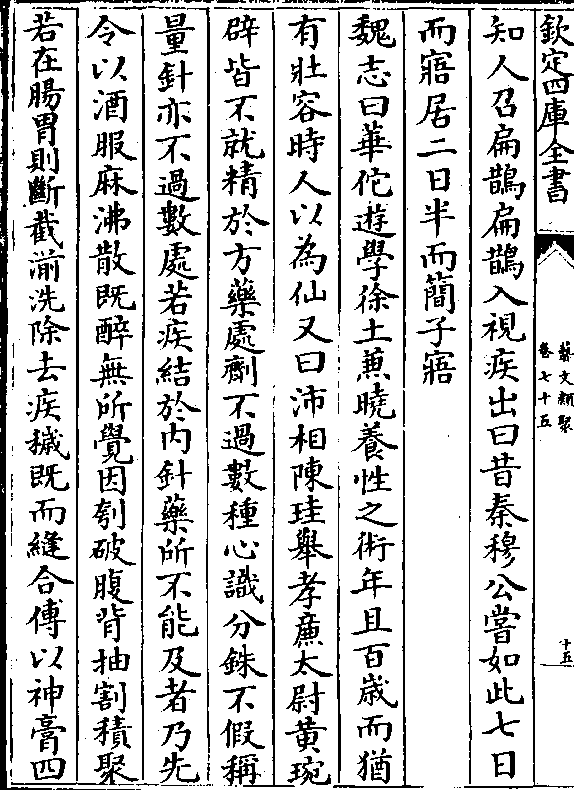 欽定四庫全書
藝文類聚
卷七十五
十五
知人召扁鵲扁鵲入視疾出曰昔秦穆公嘗如此七日
而寤居二日半而簡子寤
魏志曰華佗遊學徐土兼曉養性之術年且百歲而猶
有壯容時人以為仙又曰沛相陳珪舉孝廉太尉黃琬
辟皆不就精於方藥處劑不過數種心識分銖不假稱
量針亦不過數處若疾結於内針藥所不能及者乃先
令以酒服麻沸散既醉無所覺因刳破腹背抽割積聚
若在腸胃則斷截湔洗除去疾穢既而縫合傅以神膏四